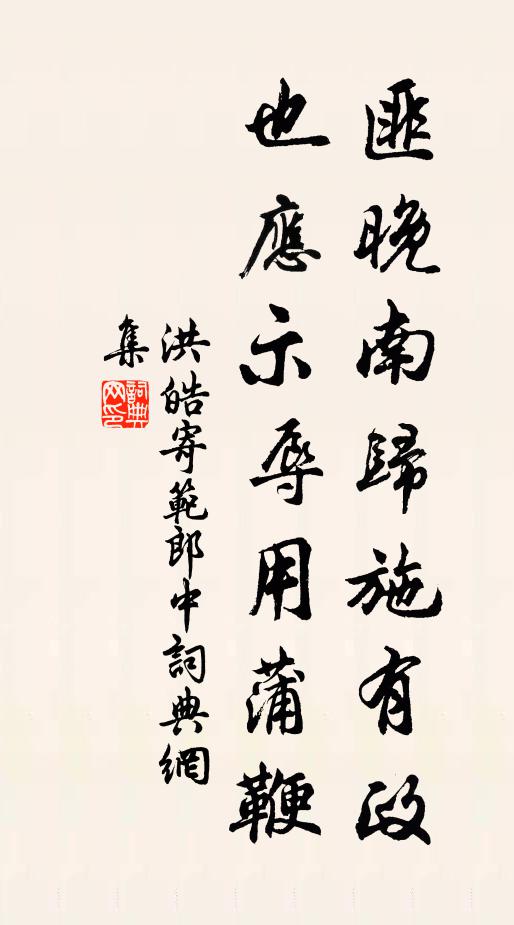 匪晚南歸施有政
也應示辱用蒲鞭
洪皓寄範郎中詞典網
集
詞典
网印